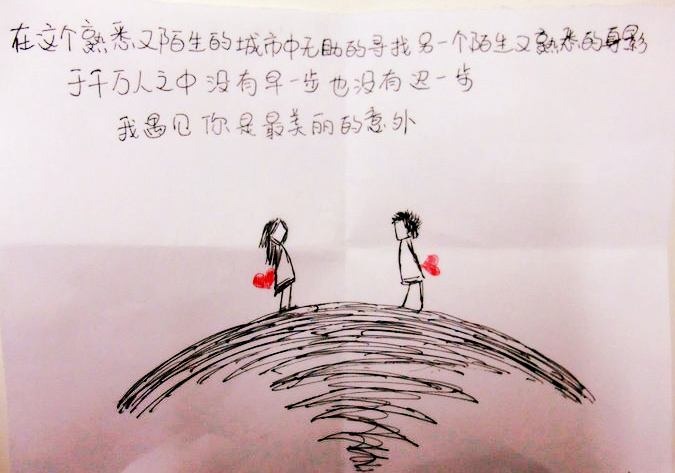 在这个熟悉又陌生的城市中无助的寻找另一个陌生又熟悉的身影
于千万人之中没有早一步也没有迟一步
我遇见你是最美丽的意外